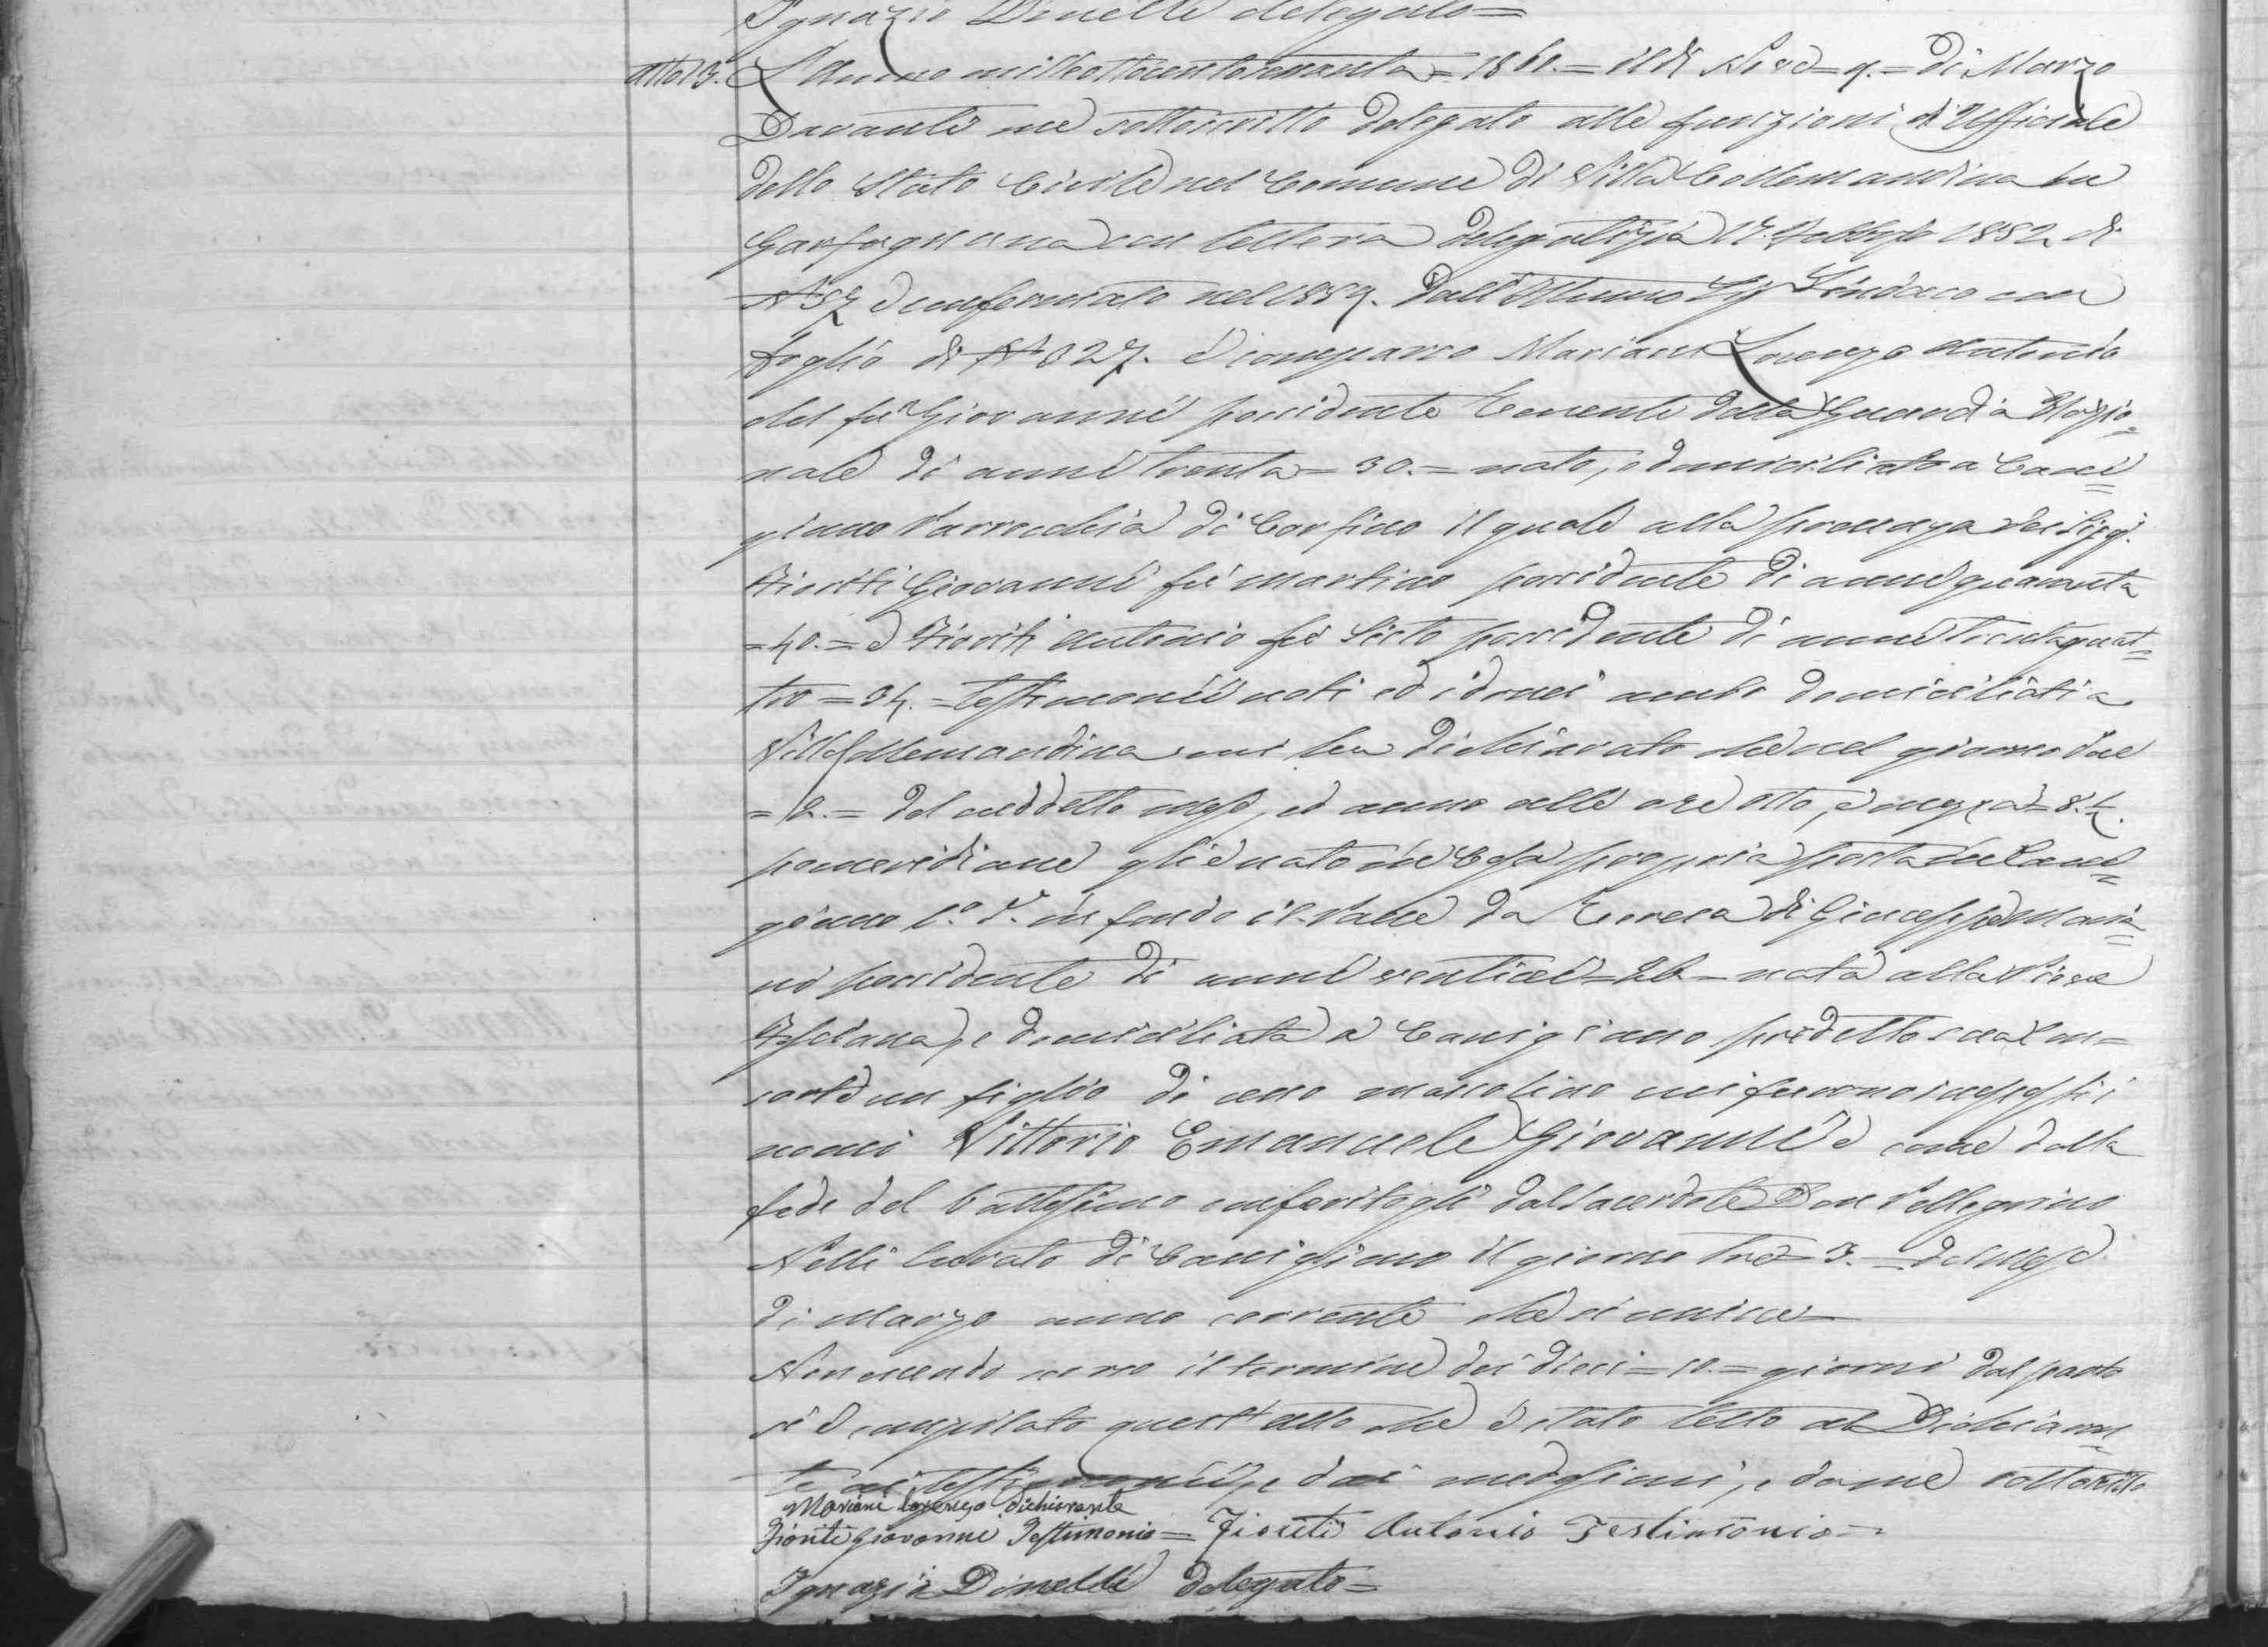 Ignazio Dinelli delegato=
Atto 13. L'Anno mille ottocento sessanta = 1860. = il di Nove = 9. = di Marzo
Davanti me sottoscritto delegato alle funzioni d'Uffiziale
dello Stato Civile nel Comune di Villa Collemandina in
Garfagnana con lettera delegatizia 17. Febbrajo 1852 di
N° 57 e confermato nel 1859. dall'Illmmo Sig Sindaco con
foglio di N° 327. è comparso Mariani Lorenzo Antonio
del fù Giovanni possidente Tenente della Guardia Nazio=
nale di anni trenta = 30. = nato, e domiciliato a Cani=
giano Parrocchia di Corfino il quale alla presenza dei sigg.
Fioriti Giovanni fù Martino possidente di anni quaranta
= 40. = e Fioriti Antonio fù Sisto possidente di anni trentaquat=
tro = 34. = testimonii noti ed idonei ambo domiciliati a
Villa Collemandina mi ha dichiarato che nel giorno due
= 2. = del suddetto mese, ed anno alle ore otto, e mezza = 8.½.
pomeridiane gli è nato in Casa propria posta in Cani=
giano l.° d.° in fondo il Paese da Teresa di Giuseppe Maria
ni possidente di anni ventisei = 26 = nata alla Pieve
Fosciana, e domiciliata a Canigiano predetto sua Con=
sorte un figlio di sesso mascolino cui furono imposti i
nomi Vittorio Emanuele Giovanni e come dalla
fede del battesimo conferitogli dal Sacerdote Don Pellegrino
Nelli Curato di Canigiano il giorno tre = 3. = del Mese
di Marzo anno corrente che si unisce
Non essendo scorso il termine dei dieci = 10. = giorni dal parto
si è compilato quest'atto che è stato letto al Dichiaran=
te ai testimonii, e dai medesimi, e da me sottoscritto
Mariani Lorenzo dichiarante
Fioriti Giovanni Testimonio = Fioriti Antonio Testimonio =
Ignazio Dinelli delegato =